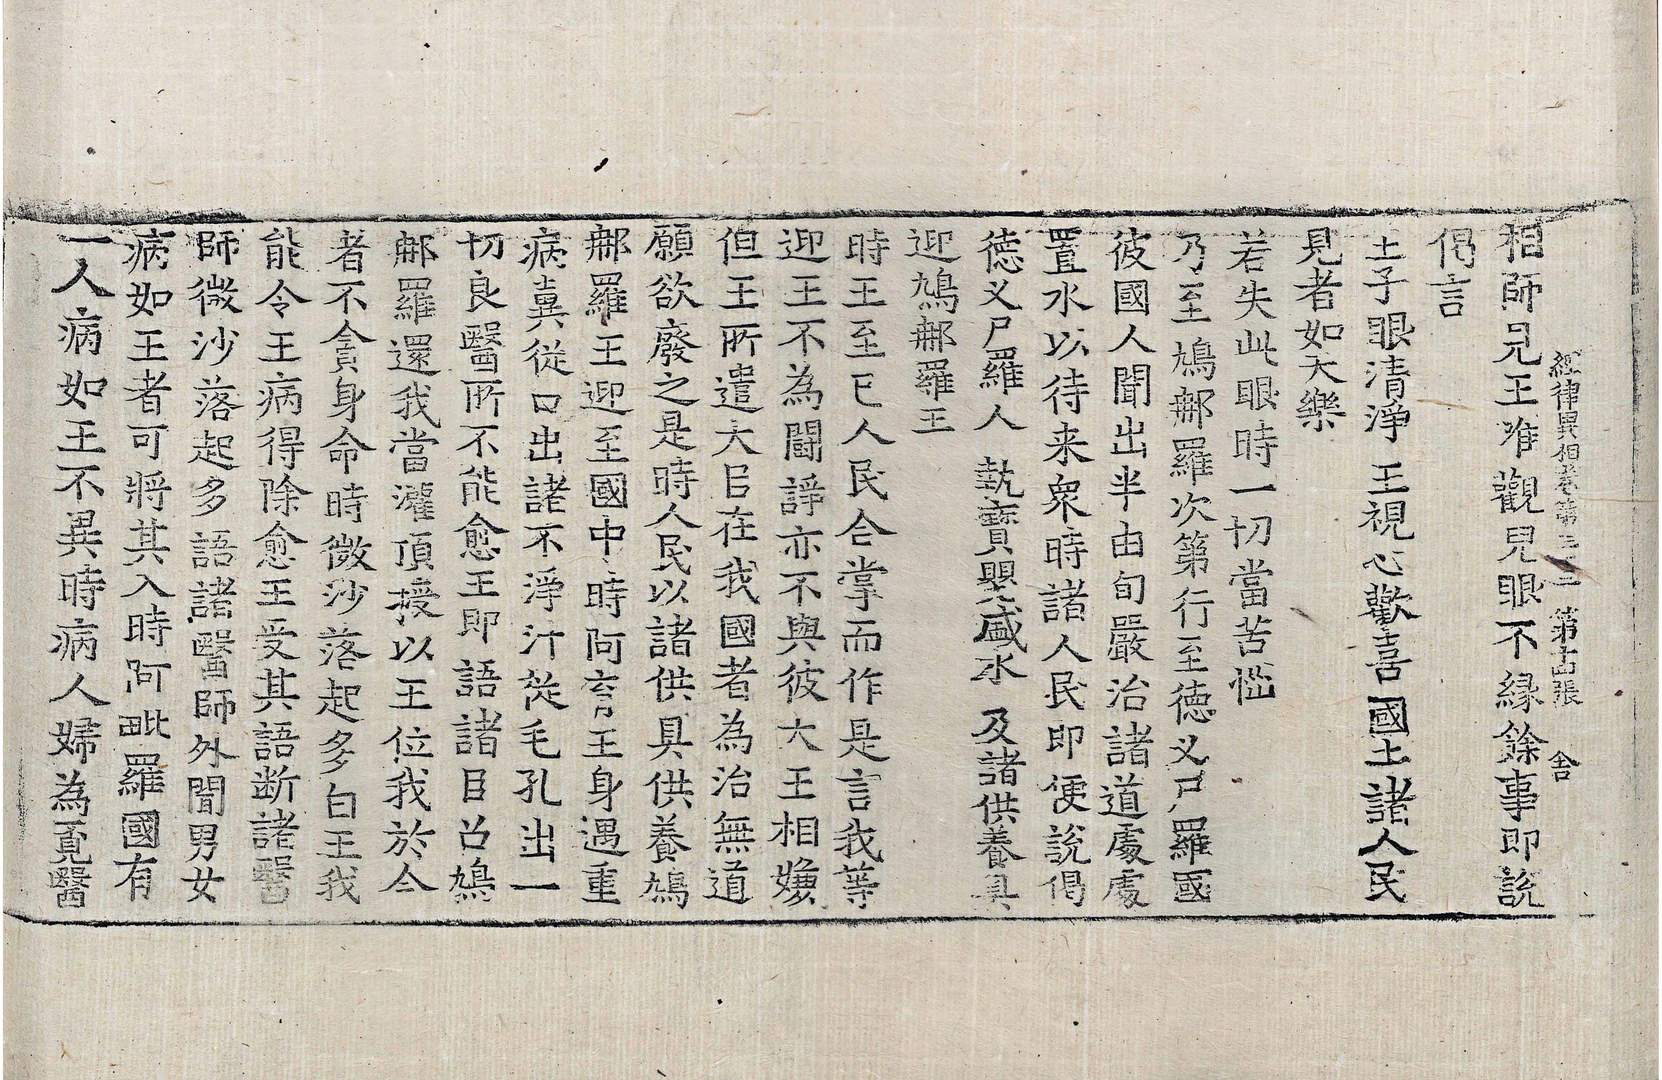 相師見王唯觀見眼不緣餘事即說
經律異相卷第三十三 第十四張 舍
偈言
王子眼清淨 王視心歡喜 國土諸人民
見者如天樂
若失此眼時一切當苦惱
乃至鳩那羅次第行至德叉尸羅國
彼國人聞出半由旬嚴治諸道處處
置水以待来衆時諸人民即便說偈
德叉尸羅人 執寶甖盛水 及諸供養具
迎鳩那羅王
時王至已人民合掌而作是言我等
迎王不為鬪諍亦不與彼大王相嫌
但王所遣大臣在我國者為治無道
願欲廢之是時人民以諸供具供養鳩
那羅王迎至國中時阿育王身遇重
病糞從口出諸不淨汁從毛孔出一
切良醫所不能愈王即語諸臣召鳩
那羅還我當灌頂授以王位我於今
者不貪身命時微沙落起多白王我
能令王病得除愈王受其語断諸醫
師微沙落起多語諸醫師外聞男女
病如王者可將其入時阿毗羅國有
一人病如王不異時病人婦為覓醫